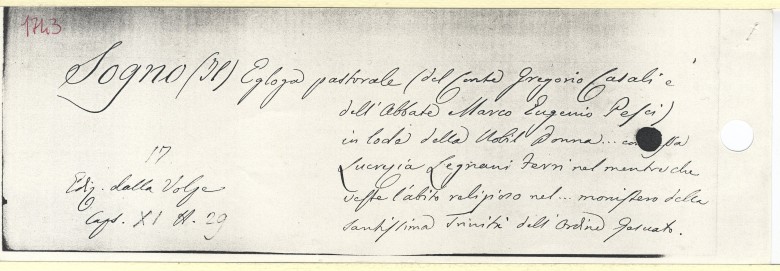 1743
Sogno (Il) Egloga pastorale (del Conte Gregorio Casali e
dell'Abbate Marco Eugenio Pesci)
in lode della Nobil Donna... contessa
17
Lucrezia Legnani Ferri nel mentre che
Ediz. dalla Volpe
veste l'abito religioso nel... monistero della
Caps. XI N. 29
Santissima Trinità dell'Ordine Gesuato.